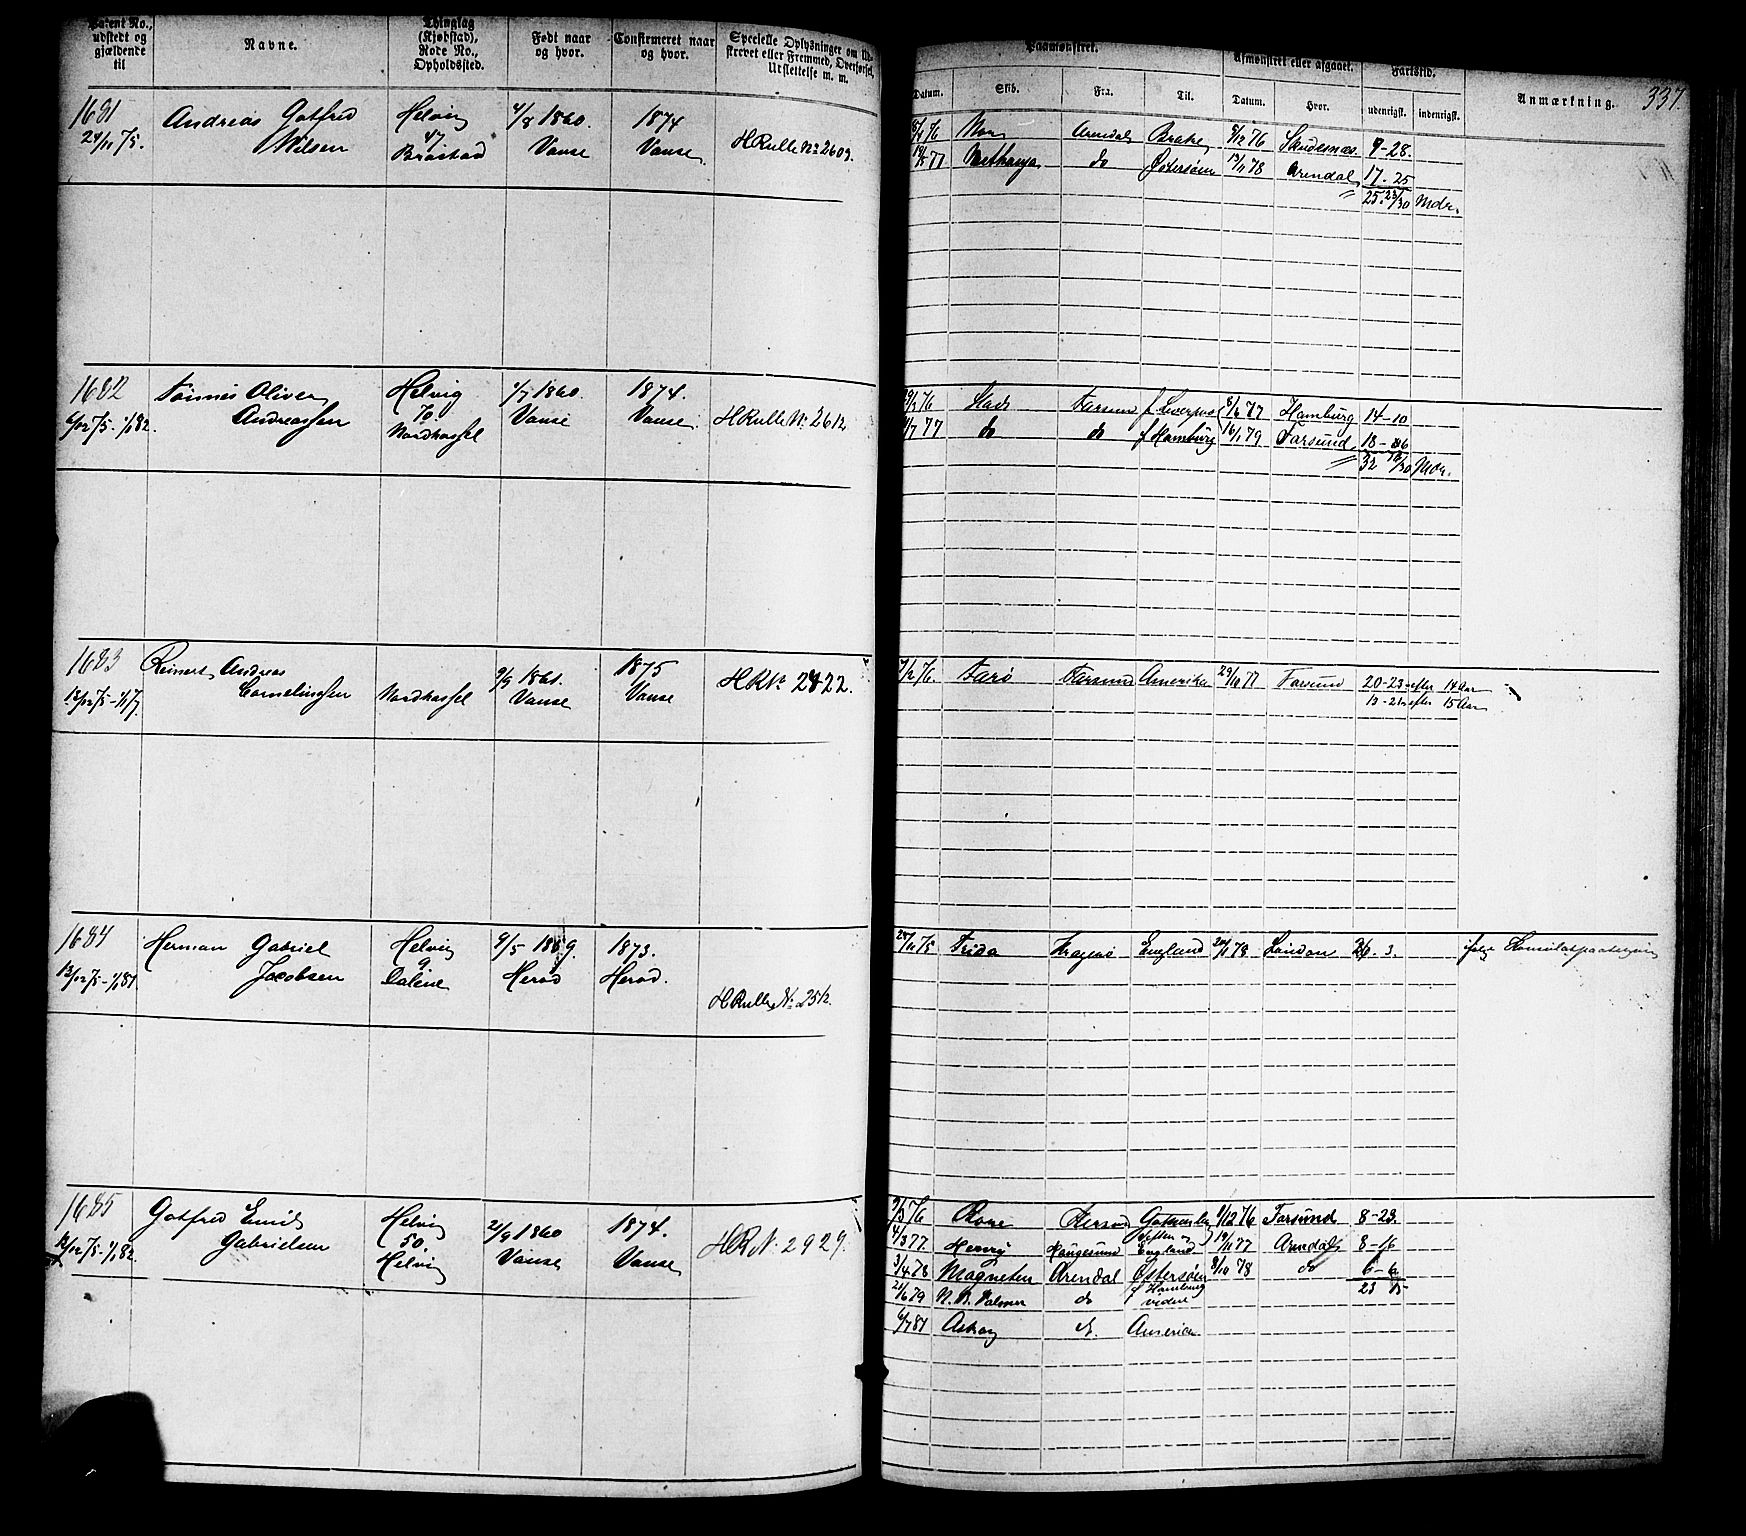 Patent No., udstedt og gjældende til
Navne.
Thinglag (Kjøbstad), Rode No., Opholdssted.
Født naar og hvor.
Confirmeret naar og hvor.
Specielle Oplysninger om
strevet eller Fremmed, Overførsel, Udslettelse m. m.
Paamønstret.
Afmønstret eller afgaaet.
Fartstid.
Datum. Skib. Fra. Til. Datum. Hvor. udenrigsk. indenrigsk. Anmærkning. 337.
1681 Andreas Gotfred Helvig 4/8 1860. 1874
24/11 75. Nilsen 47 Vanse Vanse HRulle No 2609.
Brøistad
Arendal Brake 8/12 76 Skudesnæs. 9-28.
77 Nethanja do Østersøen 13/11 78 Arendal 17-25
25. 23/30 Mdr.
1682 Tønnes Oliver Helvig 1/7 1860 1874.
6/12 75-1/1 82. Andreassen 70 Vanse Vanse HRulle No 2612
Nordhassel
76 Stads Farsund f Liverpool 8/6 77 Hamburg 14-10
77 do do f Hamburg 16/1 79 Farsund 18-
32 /30 Mdr.
1683 Reinert Andreas 9/9 1861. 1875 HRNo 2422.
13/12 75-1/1 7 Cornelinssen Nordhassel Vanse Vanse
7/2 76 Farø Farsund Amerika 29/10 77 Farsund 20-23 efter 14 Aar
13-21 efter 15 Aar
1684 Herman Gabriel Helvig 9/5 1859. 1873.
13/12 75-1/1 81 Jacobsen 9 Herød Herød.
Dalene HRulle No 2512.
24/11 75 Frida Kragerø England 20/1 78 London 26. 3. ifølge Konsulatpaategning
1685 Gotfred Emil Helvig 21/9 1860 1874. HRN. 2929.
13/12 75-1/1 82. Gabrielsen 50. Vanse Vanse
Helvig
9/5 76 Rane 1/12 76 Farsund 8-23.
4/3 77. Hervig Haugesund England 19/11 77 Arendal 8-16
3/4 78 Magneten Arendal Østersøen 8/10 78 do 6-6
23 15
21/6 79 N. B. Palmer do f Hamburg videre
6/7 81 do. America